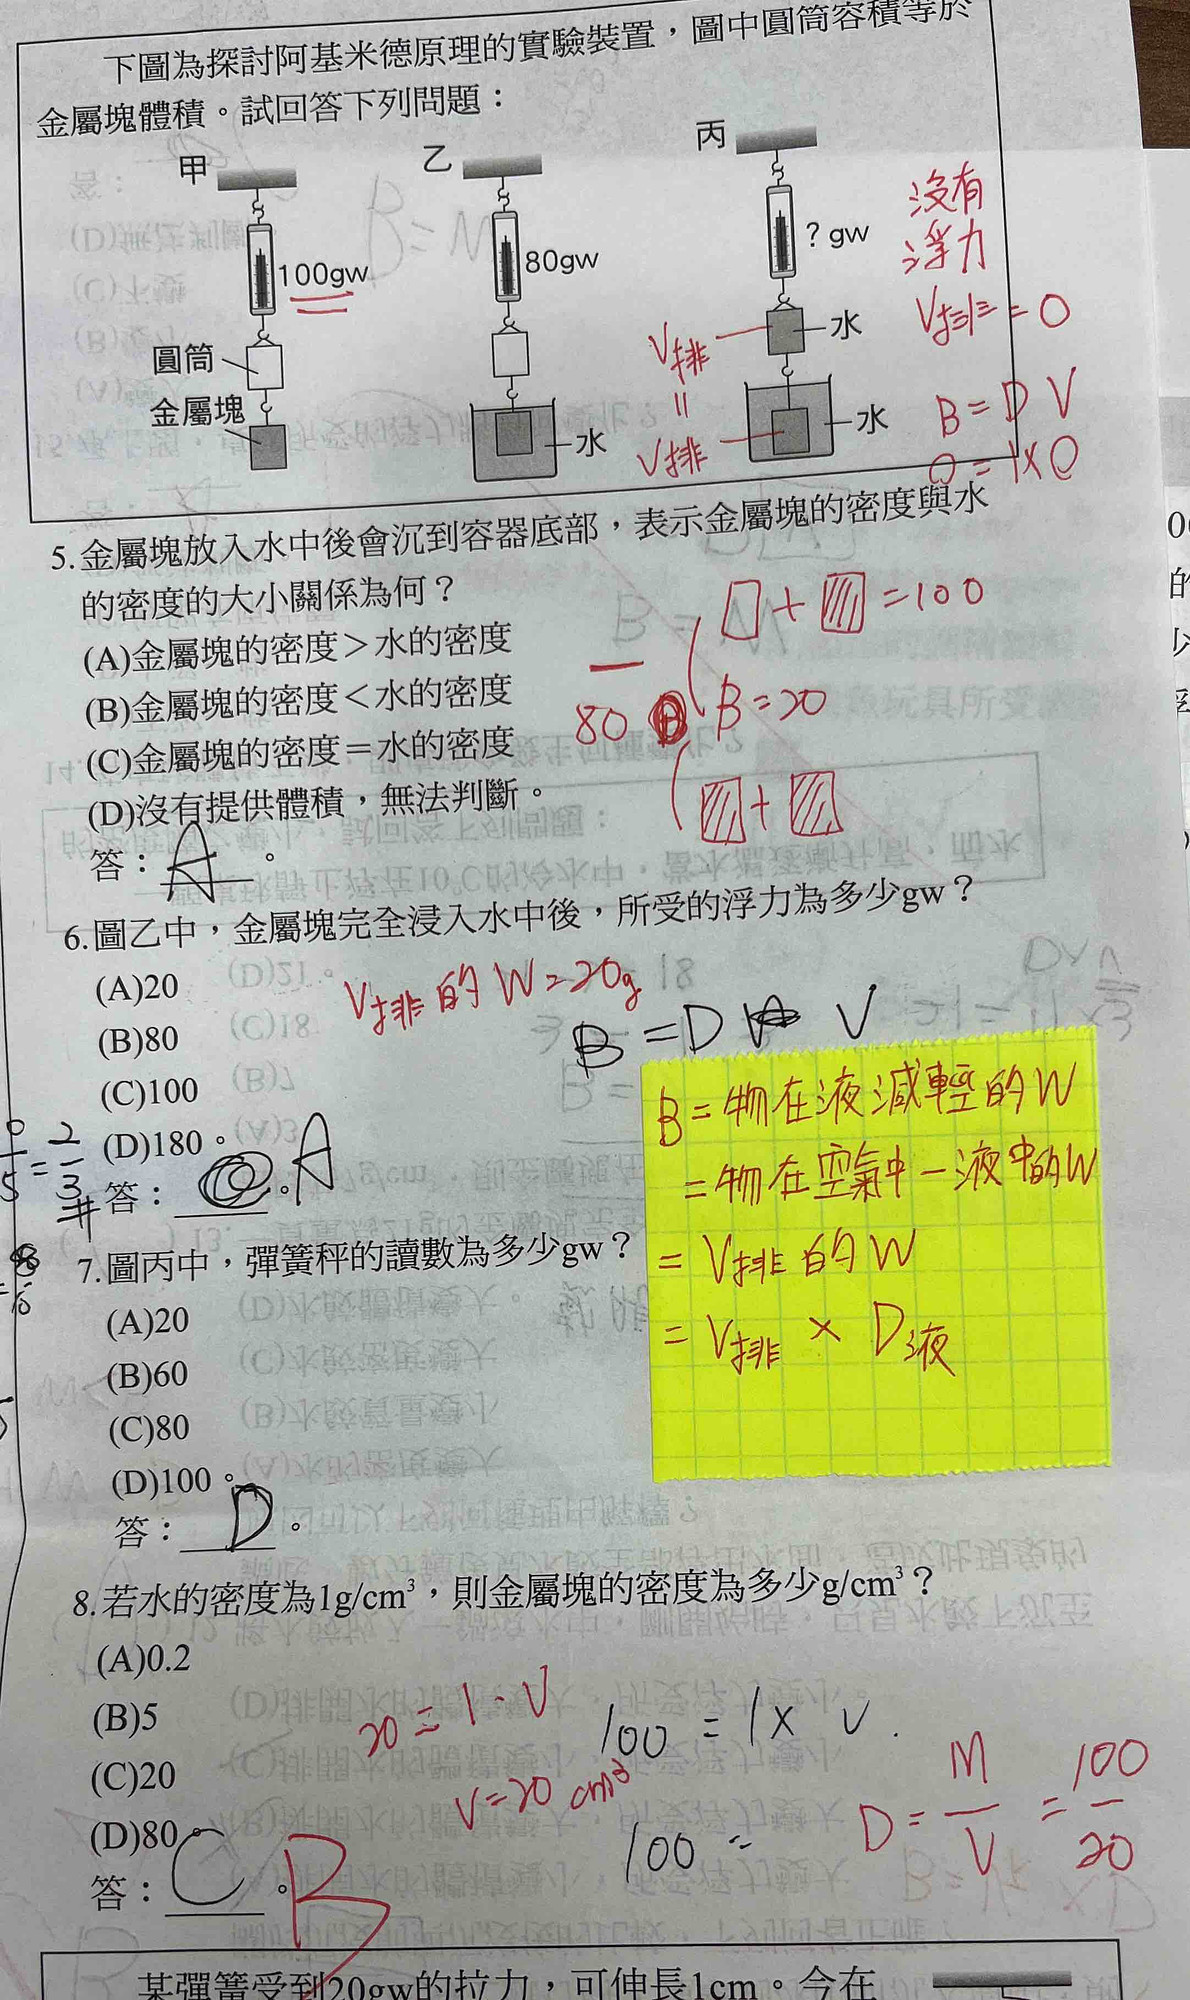 下圖為探討阿基米德原理的實驗裝置，圖中圓筒容積等於
金屬塊體積。試回答下列問題：
甲
乙
丙
100gw
80gw
? gw
圓筒
金屬塊
水
水
水
沒有
浮力
V排 = 0
V排
=
V排
B = D V
0 = 1×0
5.金屬塊放入水中後會沉到容器底部，表示金屬塊的密度與水
的密度的大小關係為何？
(A)金屬塊的密度＞水的密度
(B)金屬塊的密度＜水的密度
(C)金屬塊的密度＝水的密度
(D)沒有提供體積，無法判斷。
答：A。
+ = 100
80
B = 20
+
6.圖乙中，金屬塊完全浸入水中後，所受的浮力為多少gw？
(A)20
(B)80
(C)100
(D)180。
答：。A
V排 的 W = 20g
B = D V
2
3
B = 物在液減輕的W
= 物在空氣中 - 液中的W
= V排 的 W
= V排 × D液
7.圖丙中，彈簧秤的讀數為多少gw？
(A)20
(B)60
(C)80
(D)100。
答：D。
8.若水的密度為1g/cm³，則金屬塊的密度為多少g/cm³？
(A)0.2
(B)5
(C)20
(D)80。
答：C。B
20 = 1·V
V = 20 cm³
100 = 1× V.
100 =
D = M/V = 100/20
某彈簧受到20gw的拉力，可伸長1cm。今在